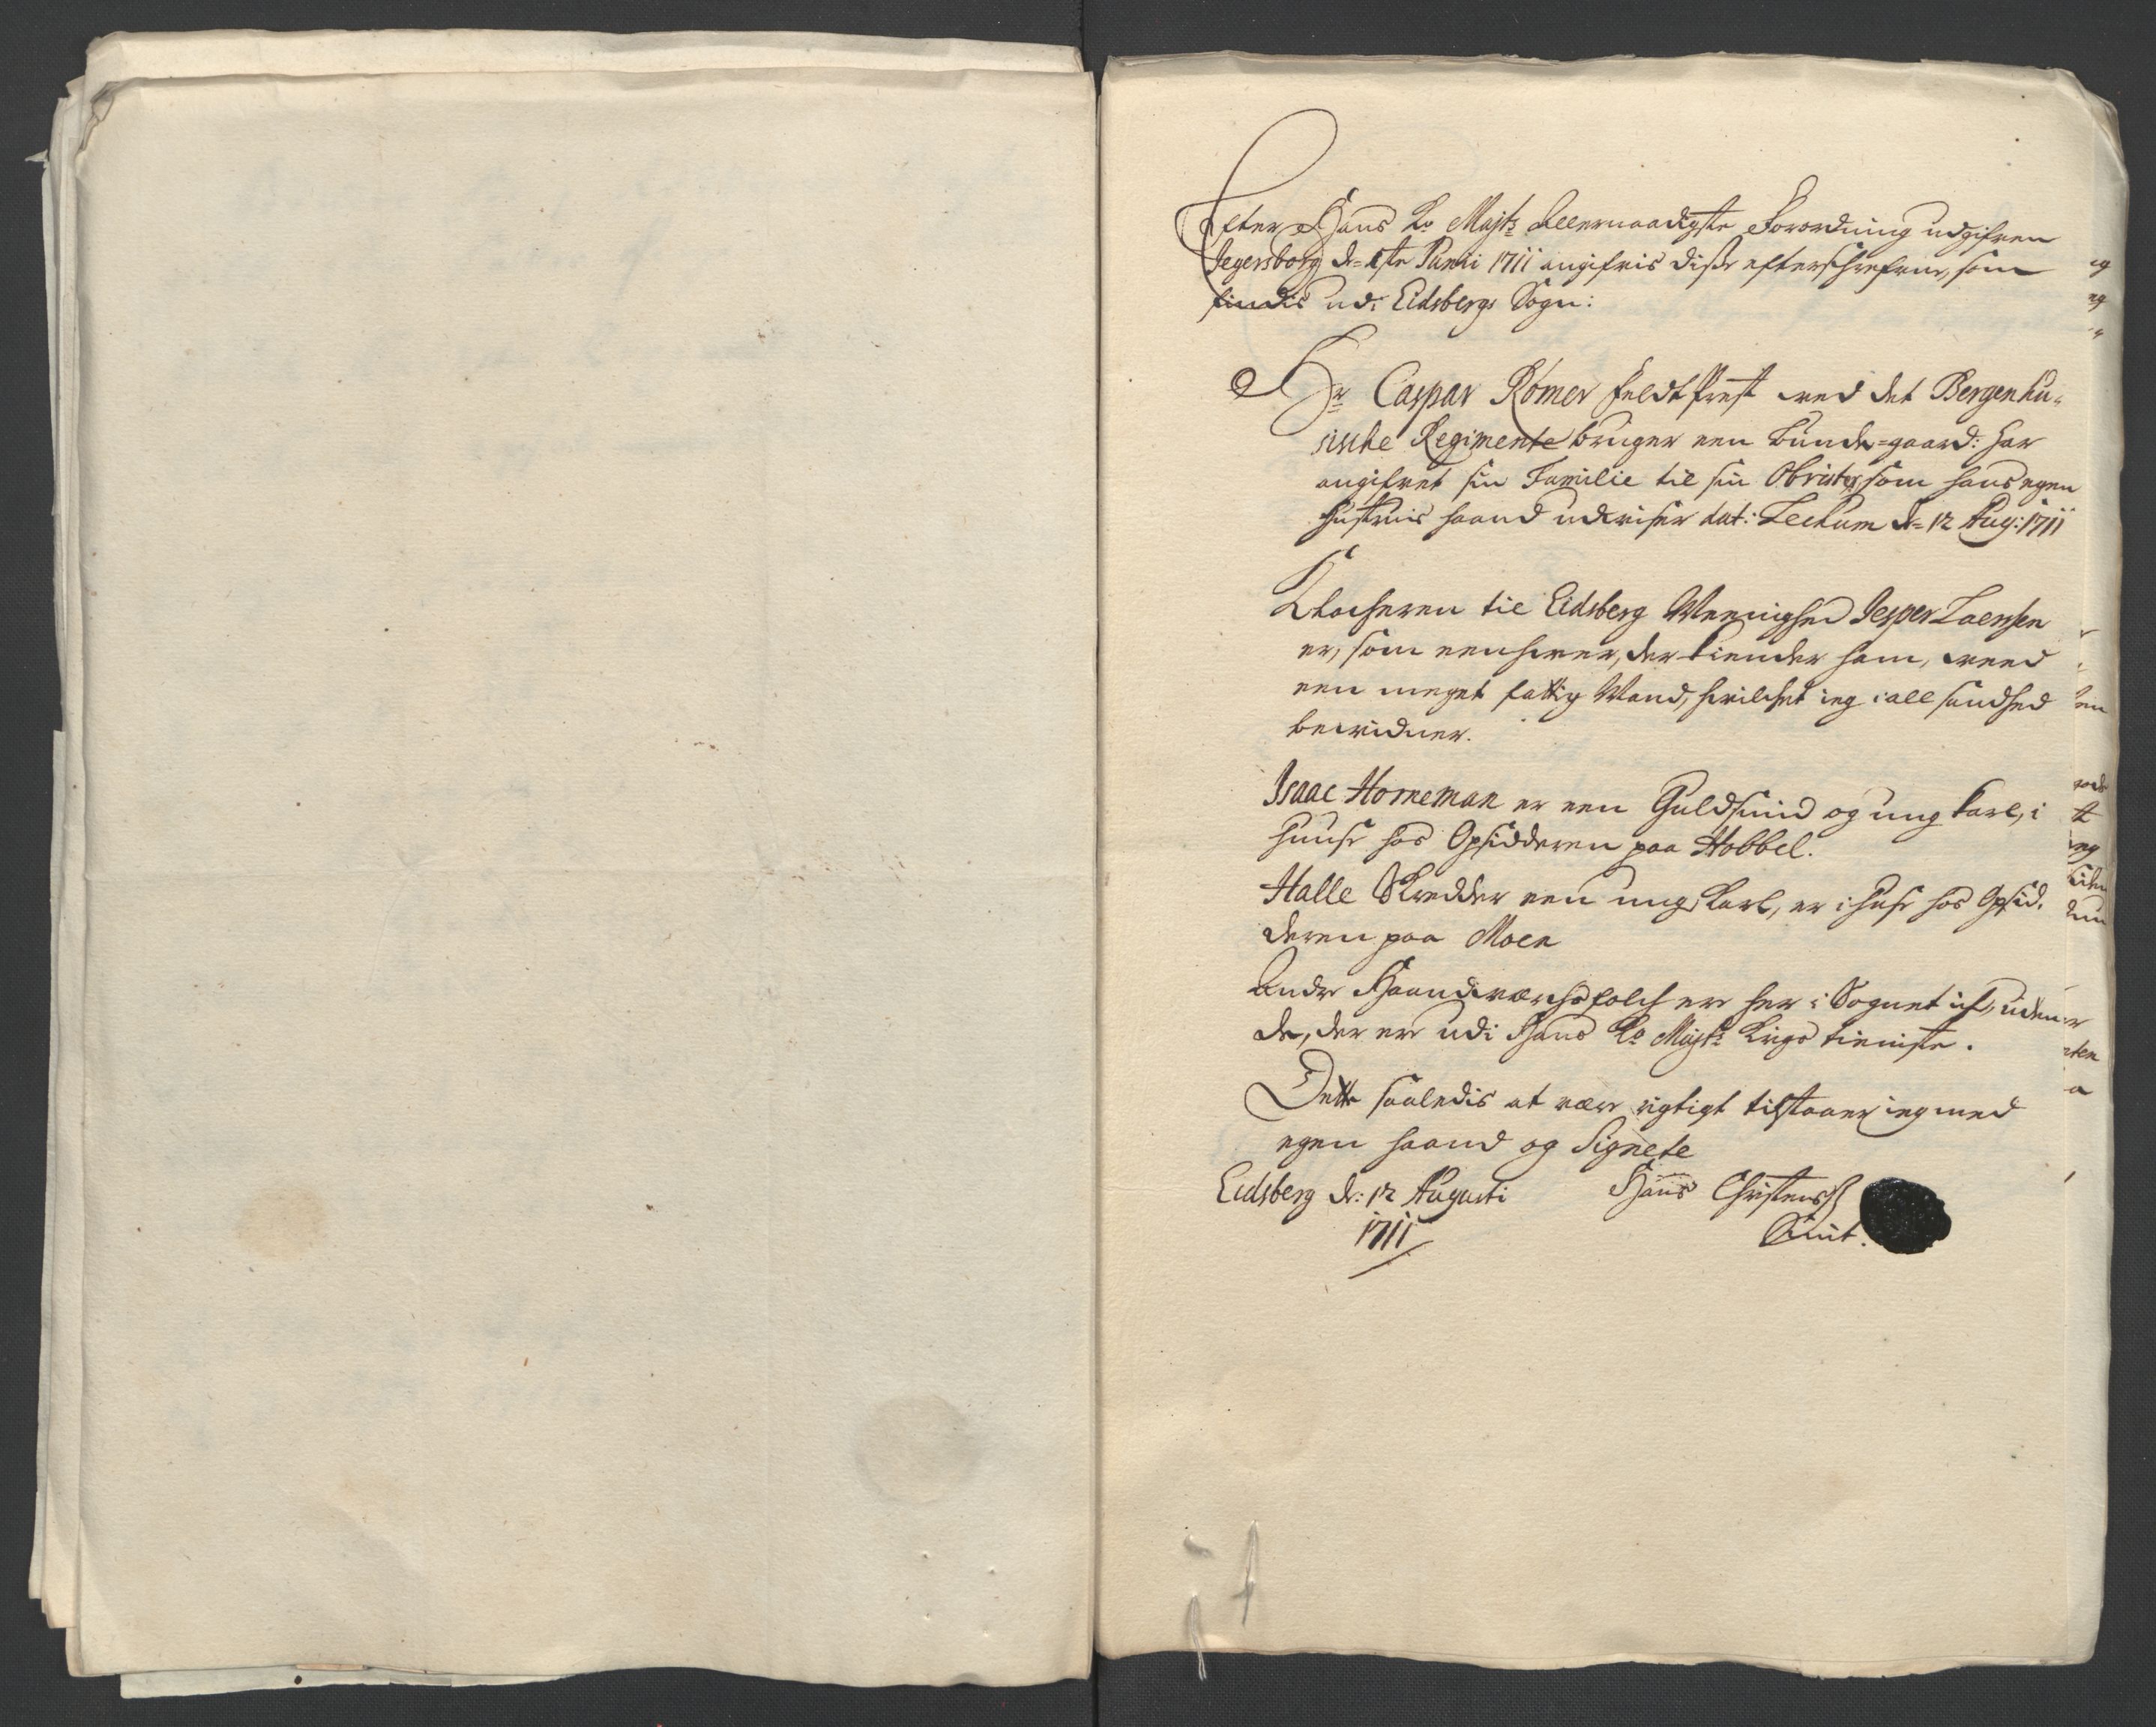 Efter Hans Ko Majts Allernaadigste Forordning udgifven
Jegersborg d= 1ste Junii 1711 angifvis disse efterschrefvne, som
findis udi Eidsbergs Sogn:
Hr Caspar Rømer feldtPrest ved det Bergenhu-
sische Regimente bruger een bunde=gaard: har
angifvet sin Familie til sin Obrister, som hans egen
hustruis haand udviser dat: Leckum d= 12 Aug: 1711
Klocheren til Eidsberg Meenighed Jesper Laerssen
er, som eenhver, der kiender ham, veed
een meget fattig Mand, hvilchet ieg i all sandhed
bevidner.
Isaac Horneman er een Guldsmid og ung karl, i
huuse hos Opsidderen paa Hobbel.
Halle Skredder een ung Karl, er i huse hos Opsid-
deren paa Moen
Andre Haandverchsfolch ere her i Sognet ich, uden
de, der ere udi Hans Ko Majts Krigs tieniste.
Dette saaledis at være rigtigt tilstaaer ieg med
egen haand og Signete
Eidsberg d: 12 Augusti Hans Christenss
1711